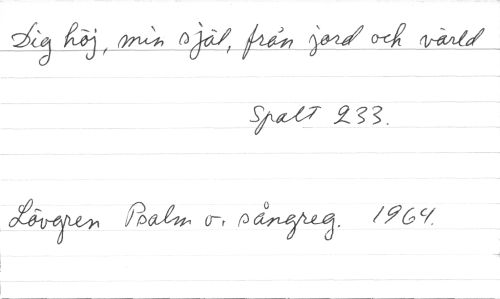 Dig höj, min själ, från jord och värld
Spalt 233.
Lövgren Psalm o. sångreg. 1964.